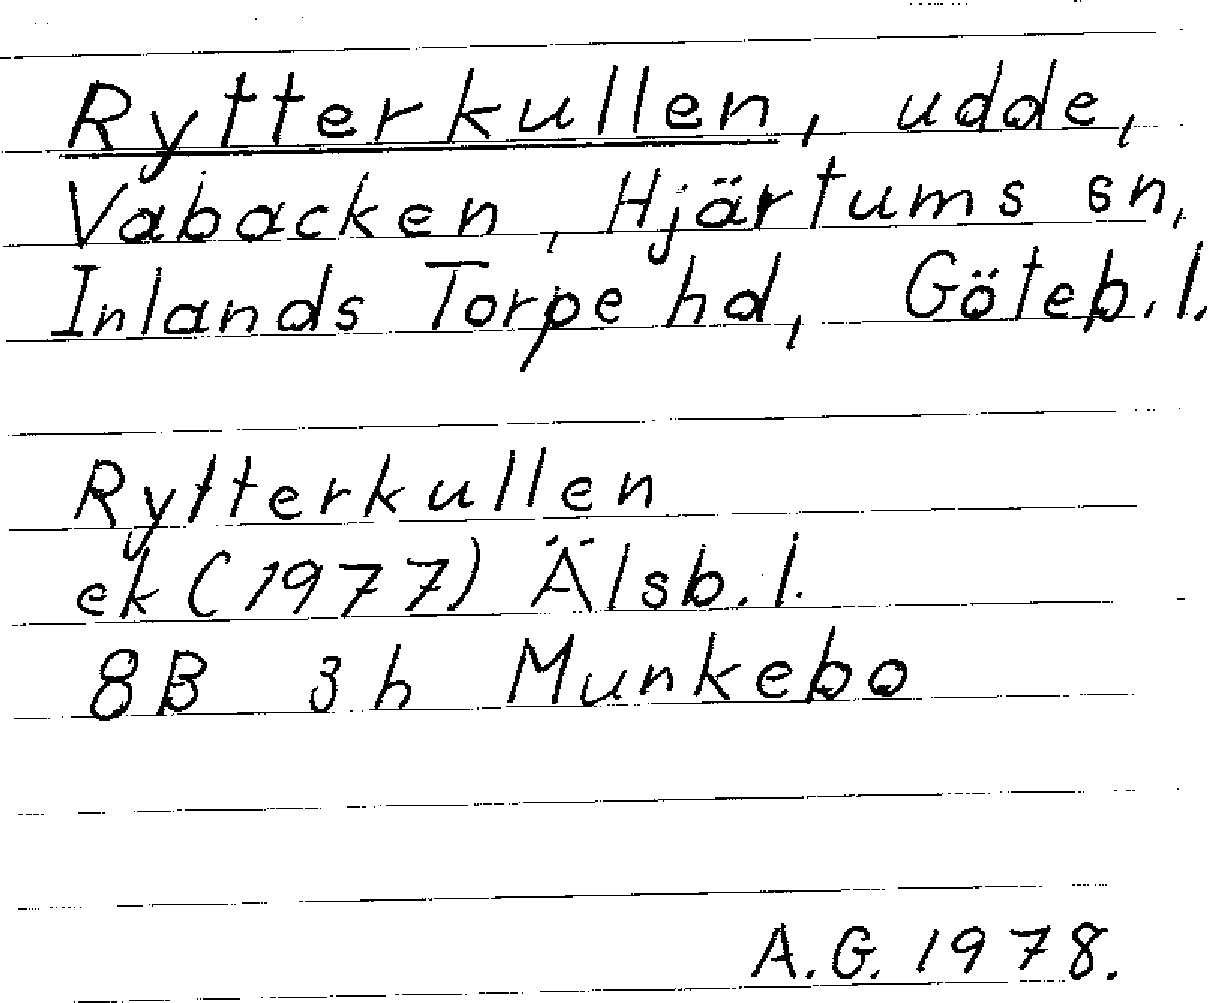 Rytterkullen, udde,
Vabacken, Hjärtums sn,
Inlands Torpe hd, Göteb. l.
Rytterkullen
ek (1977) Älsb. l.
8B 3h Munkebo
A.G. 1978.